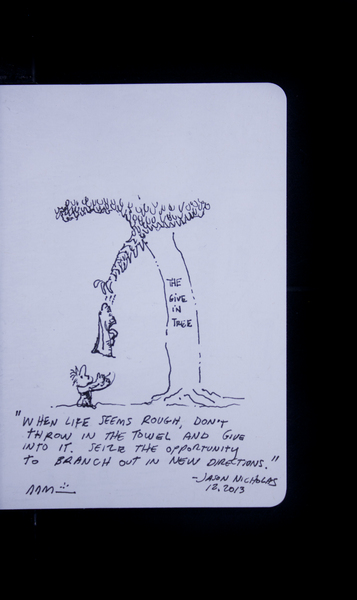 THE
GIVE
IN
TREE
"WHEN LIFE SEEMS ROUGH, DON'T
THROW IN THE TOWEL AND GIVE
INTO IT. SEIZE THE OPPORTUNITY
TO BRANCH OUT IN NEW DIRECTIONS."
-JASON NICHOLAS
12.2013